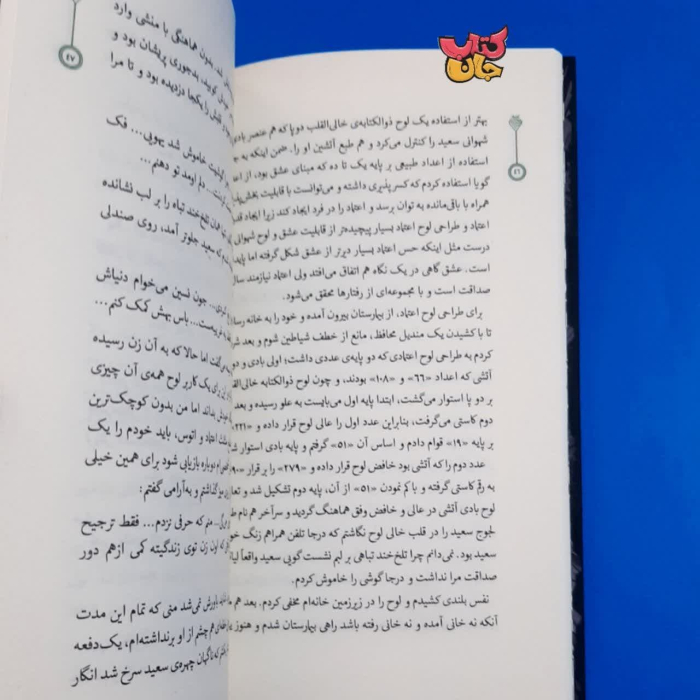 کتاب
جان
۴۶
بهتر از استفاده یک لوح ذوالکتابه‌ی خالی‌القلب دوپا که هم عنصر بادی
شهوانی سعید را کنترل می‌کرد و هم طبع آتشین او را. ضمن اینکه به
استفاده از اعداد طبیعی بر پایه یک تا ده که مبنای عشق بود، از
گویا استفاده کردم که کسرپذیری داشته و می‌توانست با قابلیت
همراه با باقی‌مانده به توان برسد و اعتماد را در فرد ایجاد کند زیرا ایجاد
اعتماد و طراحی لوح اعتماد بسیار پیچیده‌تر از قابلیت عشق و لوح شهوانی
درست مثل اینکه حس اعتماد بسیار دیرتر از عشق شکل گرفته اما
است. عشق گاهی در یک نگاه هم اتفاق می‌افتد ولی اعتماد نیازمند
صداقت است و با مجموعه‌ای از رفتارها محقق می‌شود.
برای طراحی لوح اعتماد، از بیمارستان بیرون آمده و خود را به خانه
تا با کشیدن یک مندیل محافظ، مانع از خطف شیاطین شوم و بعد
کردم به طراحی لوح اعتمادی که دو پایه‌ی عددی داشت؛ اولی بادی و
آتشی که اعداد «۶۶» و «۱۰۸» بودند، و چون لوح ذوالکتابه
بر دو پا استوار می‌گشت، ابتدا پایه اول می‌بایست به علو رسیده و بعد
دوم کاستی می‌گرفت، بنابراین عدد اول را عالی لوح قرار داده و
بر پایه «۱۹» قوام دادم و اساس آن «۵۱» گرفتم و پایه بادی استوار
عدد دوم را که آتشی بود خافض لوح قرار داده و «۲۷۹» را برقرار
به رقم کاستی گرفته و با کم نمودن «۵۱» از آن، پایه دوم تشکیل شد و
لوح بادی آتشی در عالی و خافض وفق هماهنگ گردید و سرآخر هم نام
لجوج سعید را در قلب خالی لوح نگاشتم که درجا تلفن همراهم زنگ
سعید بود. نمی‌دانم چرا تلخند تباهی بر لبم نشست گویی سعید واقعاً
صداقت مرا نداشت و درجا گوشی را خاموش کردم.
نفس بلندی کشیدم و لوح را در زیرزمین خانه‌ام مخفی کردم. بعد هم
آنکه نه خانی آمده و نه خانی رفته باشد راهی بیمارستان شدم و هنوز
۴۷
بدون هماهنگی با منشی وارد
کوبید. بدجوری پریشان بود و
قلبش را یکجا دزدیده بود و تا مرا
خاموش شد یهویی... فک
دلم اومد تو دهنم...
همان تلخند تباه را بر لب نشانده
که سعید جلوتر آمد، روی صندلی
جون نسین می‌خوام دنیاش
باس بهش کمک کنم...
اما حالا که به آن زن رسیده
برای یک کاربر لوح همه‌ی آن چیزی
بداند اما من بدون کوچک‌ترین
اعتماد و انوس، باید خودم را یک
دوباره بازیابی شود برای همین خیلی
گذاشتم و به‌آرامی گفتم:
منم که حرفی نزدم... فقط ترجیح
اون زن توی زندگیته کمی ازهم دور
باورش نمی‌شد منی که تمام این مدت
هم چشم از او برنداشته‌ام، یک‌دفعه
که ناگهان چهره‌ی سعید سرخ شد انگار